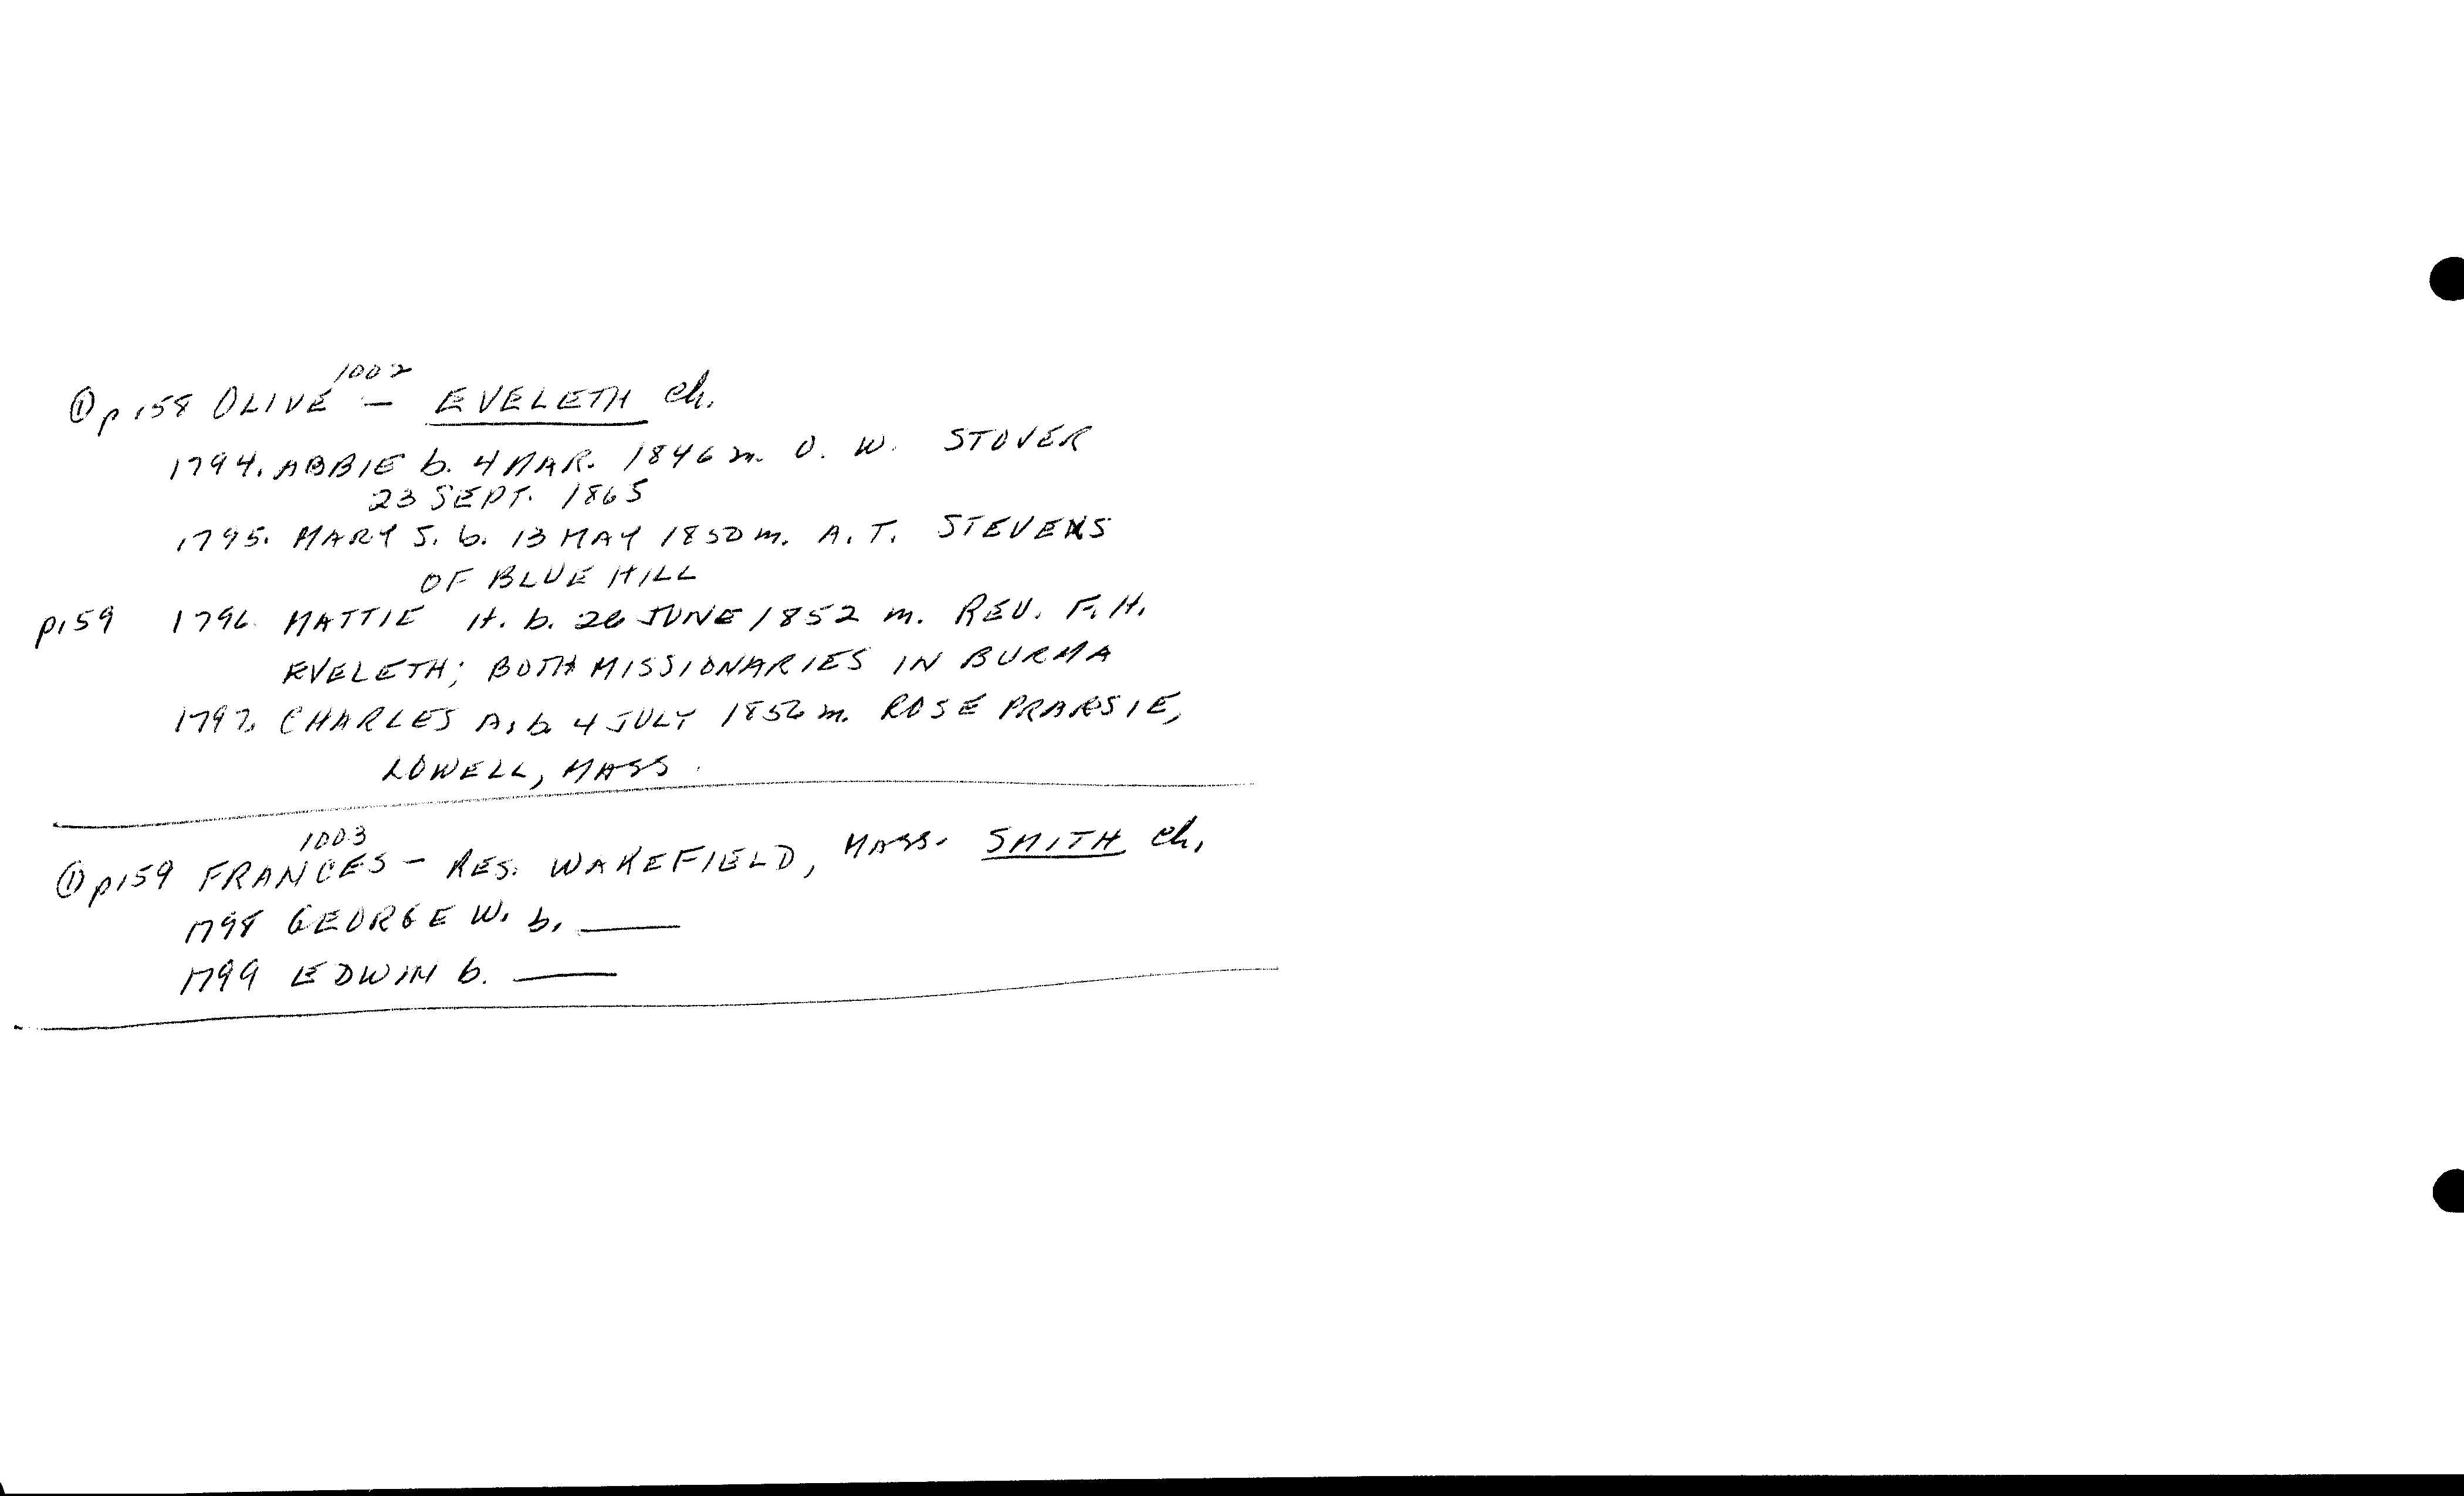 1002
① p158 OLIVE — EVELETH ch.
1794. ABBIE b. 4 MAR. 1846 m. O. W. STOVER
23 SEPT. 1865
1795. MARY S. b. 13 MAY 1850 m. A. T. STEVENS
OF BLUE HILL
p159 1796. MATTIE H. b. 26 JUNE 1852 m. REV. F. H.
EVELETH; BOTH MISSIONARIES IN BURMA
1797. CHARLES A. b. 4 JULY 1856 m. ROSE
LOWELL, MASS.
1003
① p159 FRANCES — RES. WAKEFIELD, MASS. SMITH ch.
1798 GEORGE W. b. ___
1799 EDWIN b. ___